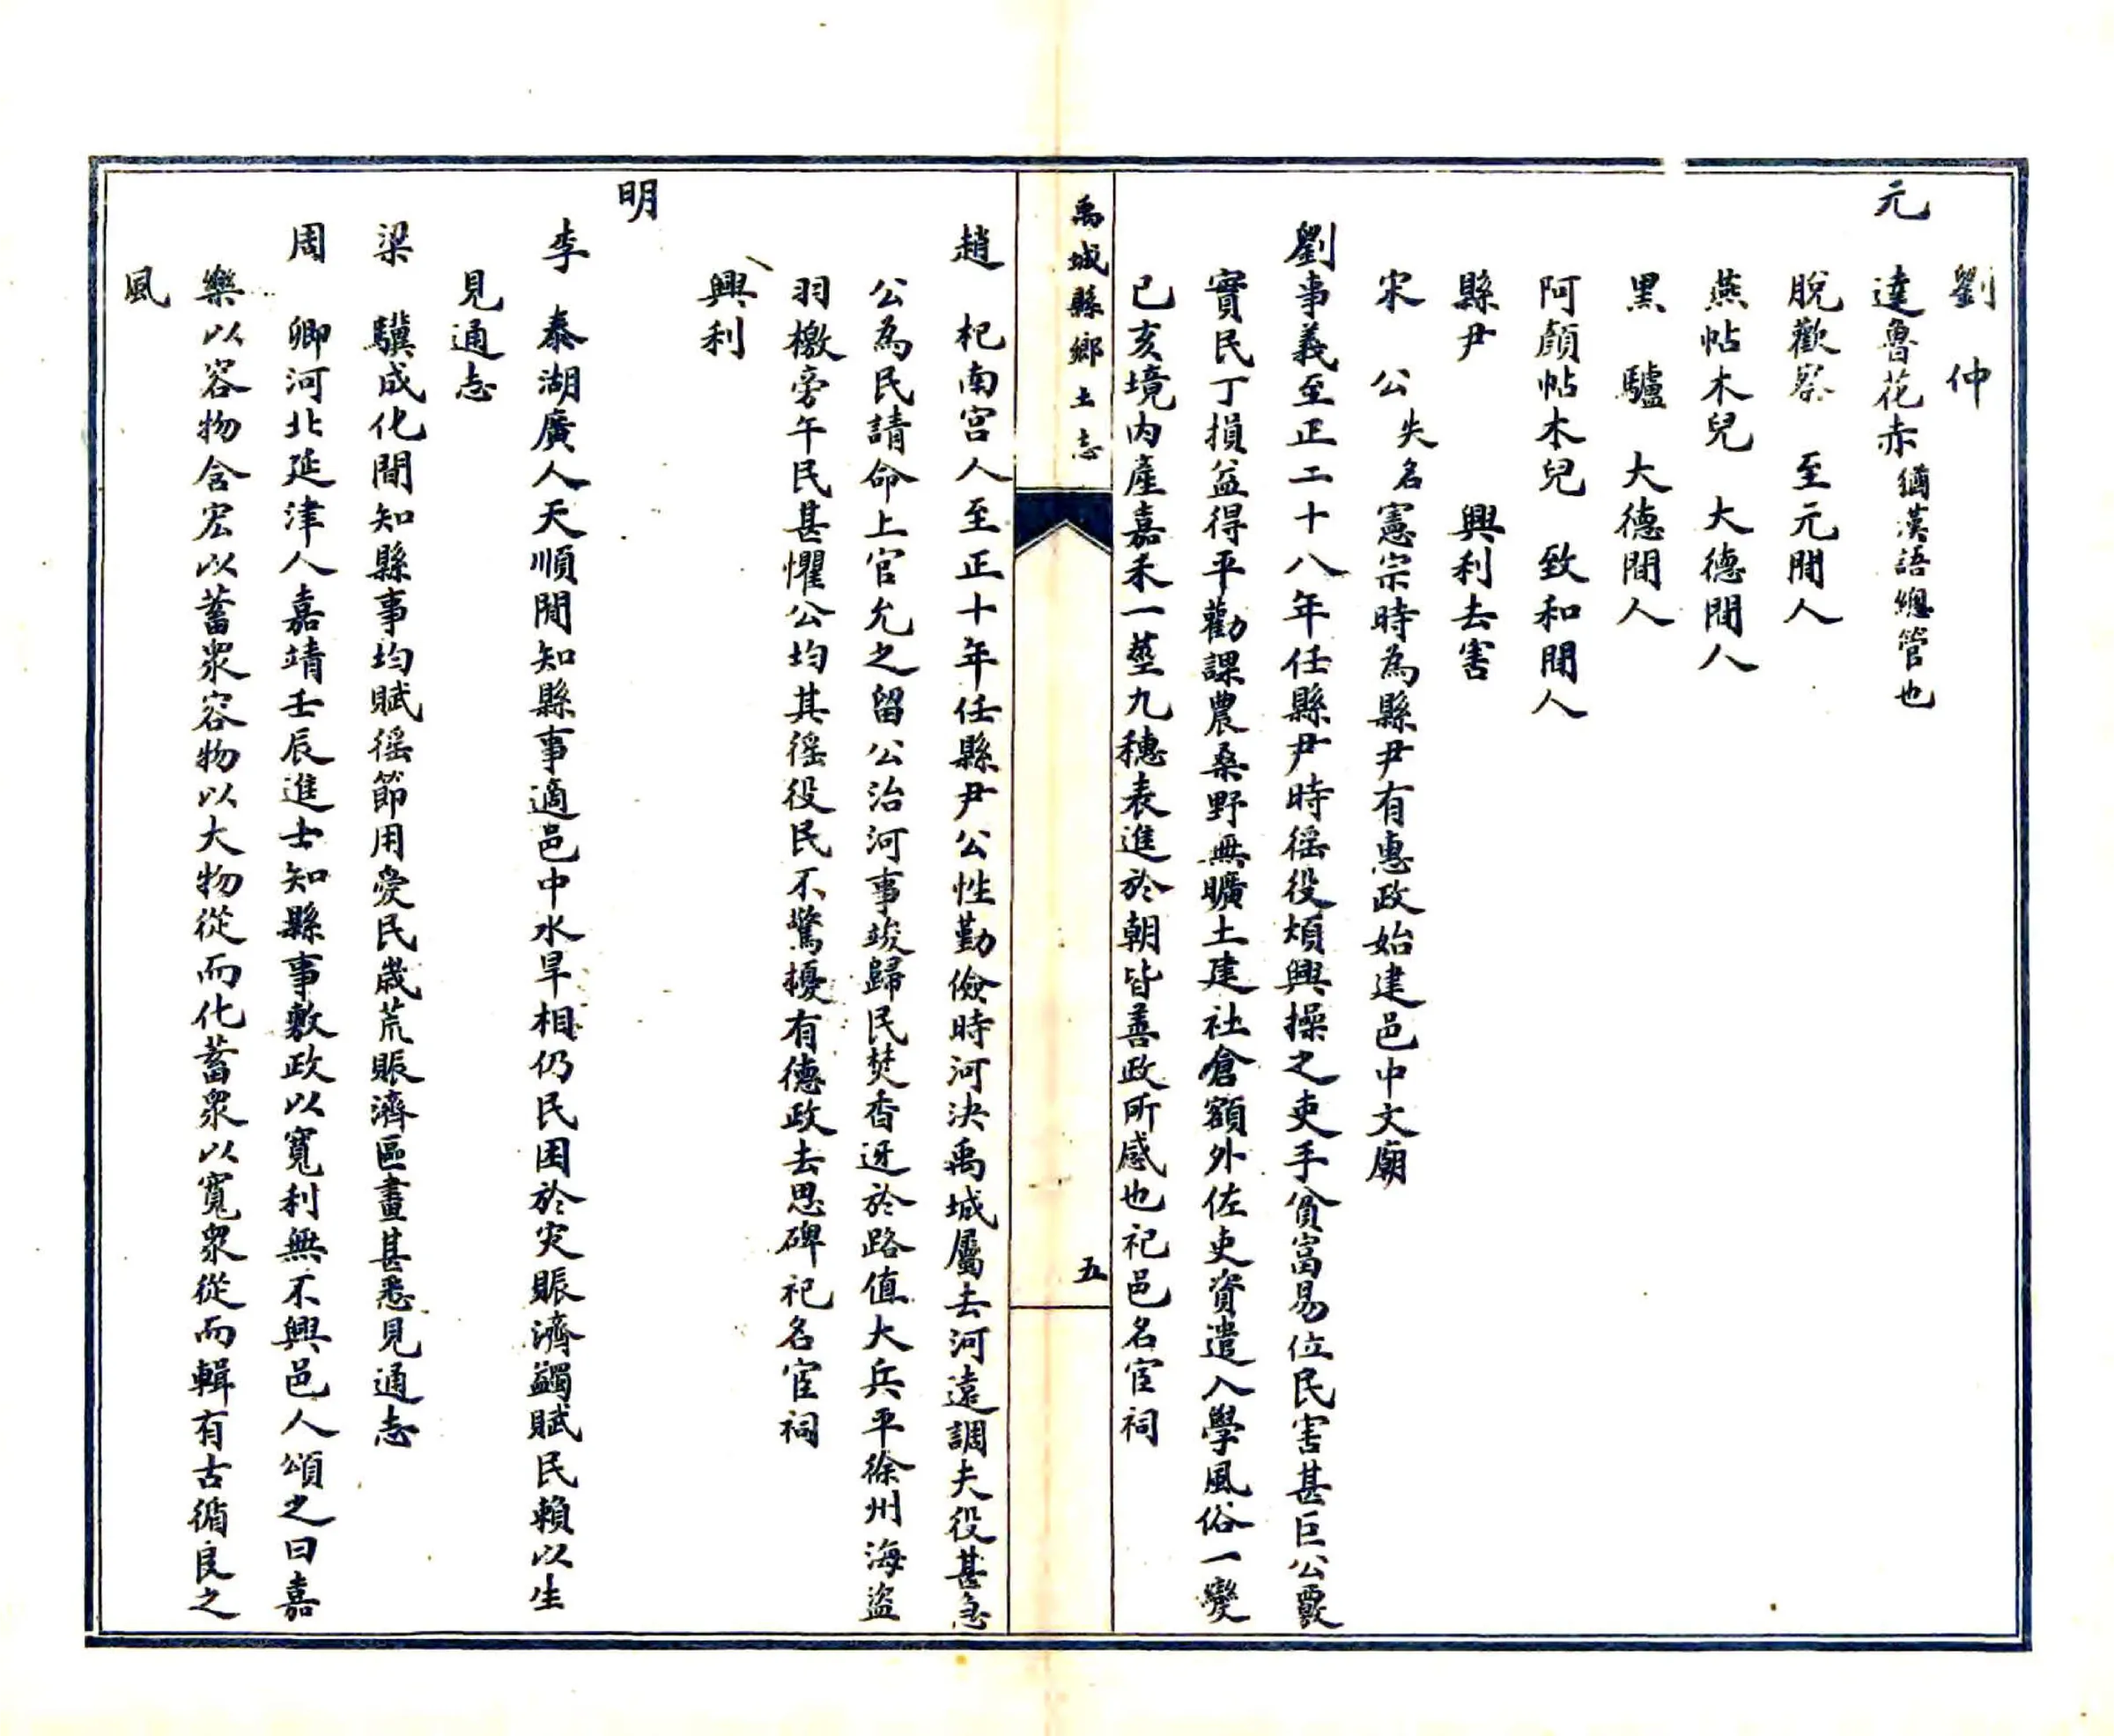 劉　仲
元　達魯花赤 猶漢語總管也
脫歡察　至元間人
燕帖木兒　大德間人
黑　驢　大德間人
阿顏帖木兒　致和間人
縣尹　　　興利去害
宋　公 失名 憲宗時為縣尹有惠政始建邑中文廟
劉事義至正二十八年任縣尹時徭役煩興操之吏手貧富易位民害甚巨公覈
實民丁損益得平勸課農桑野無曠土建社倉額外佐吏資遣入學風俗一變
已亥境內產嘉禾一莖九穗表進於朝皆善政所感也祀邑名宦祠
禹城縣鄉土志　五
趙　杞南宮人至正十年任縣尹公性勤儉時河決禹城屬去河遠調夫役甚急
公為民請命上官允之留公治河事竣歸民焚香迓於路值大兵平徐州海盜
羽檄旁午民甚懼公均其徭役民不驚擾有德政去思碑祀名宦祠
興利
明
李　泰湖廣人天順間知縣事適邑中水旱相仍民困於災賑濟蠲賦民賴以生
見通志
梁　驥成化間知縣事均賦徭節用愛民歲荒賑濟區畫甚悉見通志
周　卿河北延津人嘉靖壬辰進士知縣事敷政以寬利無不興邑人頌之曰嘉
樂以容物含宏以蓄眾容物以大物從而化蓄眾以寬眾從而輯有古循良之
風